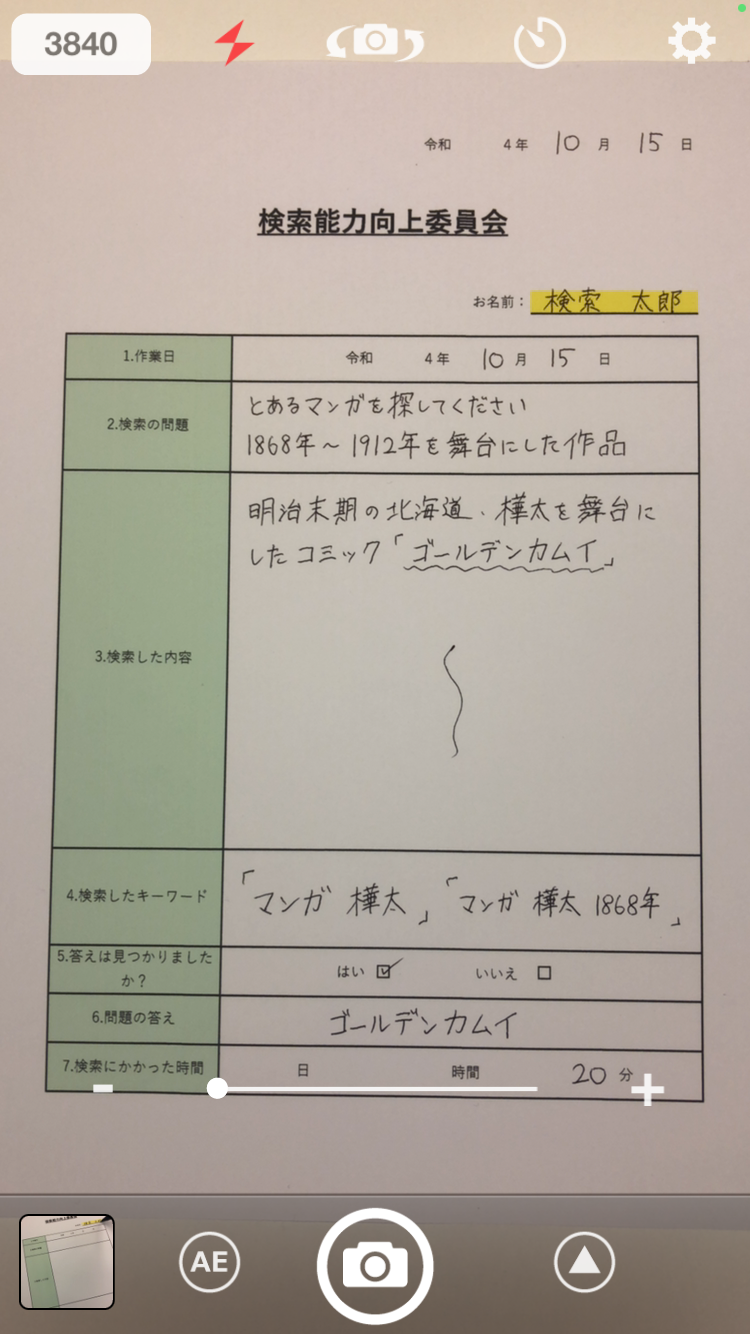 3840
令和 4年 10月 15日
検索能力向上委員会
お名前: 検索 太郎
1.作業日 令和 4年 10月 15日
2.検索の問題
とあるマンガを探してください
1868年～1912年を舞台にした作品
3.検索した内容
明治末期の北海道、樺太を舞台に
したコミック「ゴールデンカムイ」
4.検索したキーワード
「マンガ 樺太」「マンガ 樺太 1868年」
5.答えは見つかりました
か?
はい ☑ いいえ □
6.問題の答え ゴールデンカムイ
7.検索にかかった時間 日 時間 20分
AE